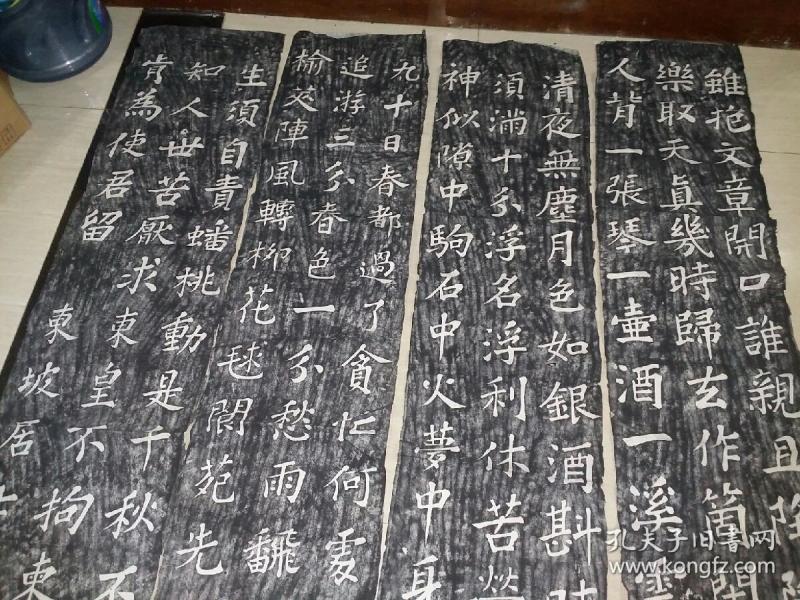 雖抱文章開口誰親且陶陶
樂取天真幾時歸去作箇閒
人背一張琴一壺酒一溪雲
清夜無塵月色如銀酒斟時
須滿十分浮名浮利休苦勞
神似隙中駒石中火夢中身
九十日春都過了貪忙何處
追游三分春色一分愁雨翻
榆莢陣風轉柳花毬閬苑先
生須自責蟠桃動是千秋不
知人世苦厭求東皇不拘束
肯為使君留
東坡居士
孔夫子旧書网
www.kongfz.com